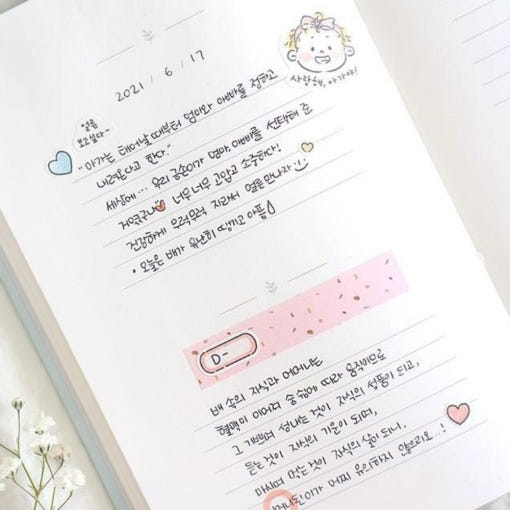 2021 / 6 / 17
사랑해, 아가야!
얼른
보고싶다~
"아가는 태어날 때부터 엄마와 아빠를 정하고
내려온다고 한다"
세상에... 우리 공손이가 엄마, 아빠를 선택해 준
거였구나 너무너무 고맙고 소중하다!
건강하게 무럭무럭 자라서 얼른 만나자
• 오늘은 배가 유난히 땡기고 아픔
D-
배 속의 자식과 어머니는
혈맥이 이어져 숨쉼에 따라 움직이므로
그 기쁘며 성내는 것이 자식의 성품이 되고,
듣는 것이 자식의 기운이 되며,
마시며 먹는 것이 자식의 살이 되니.
어머니된 이가 어찌 유의하지 않으리오...!